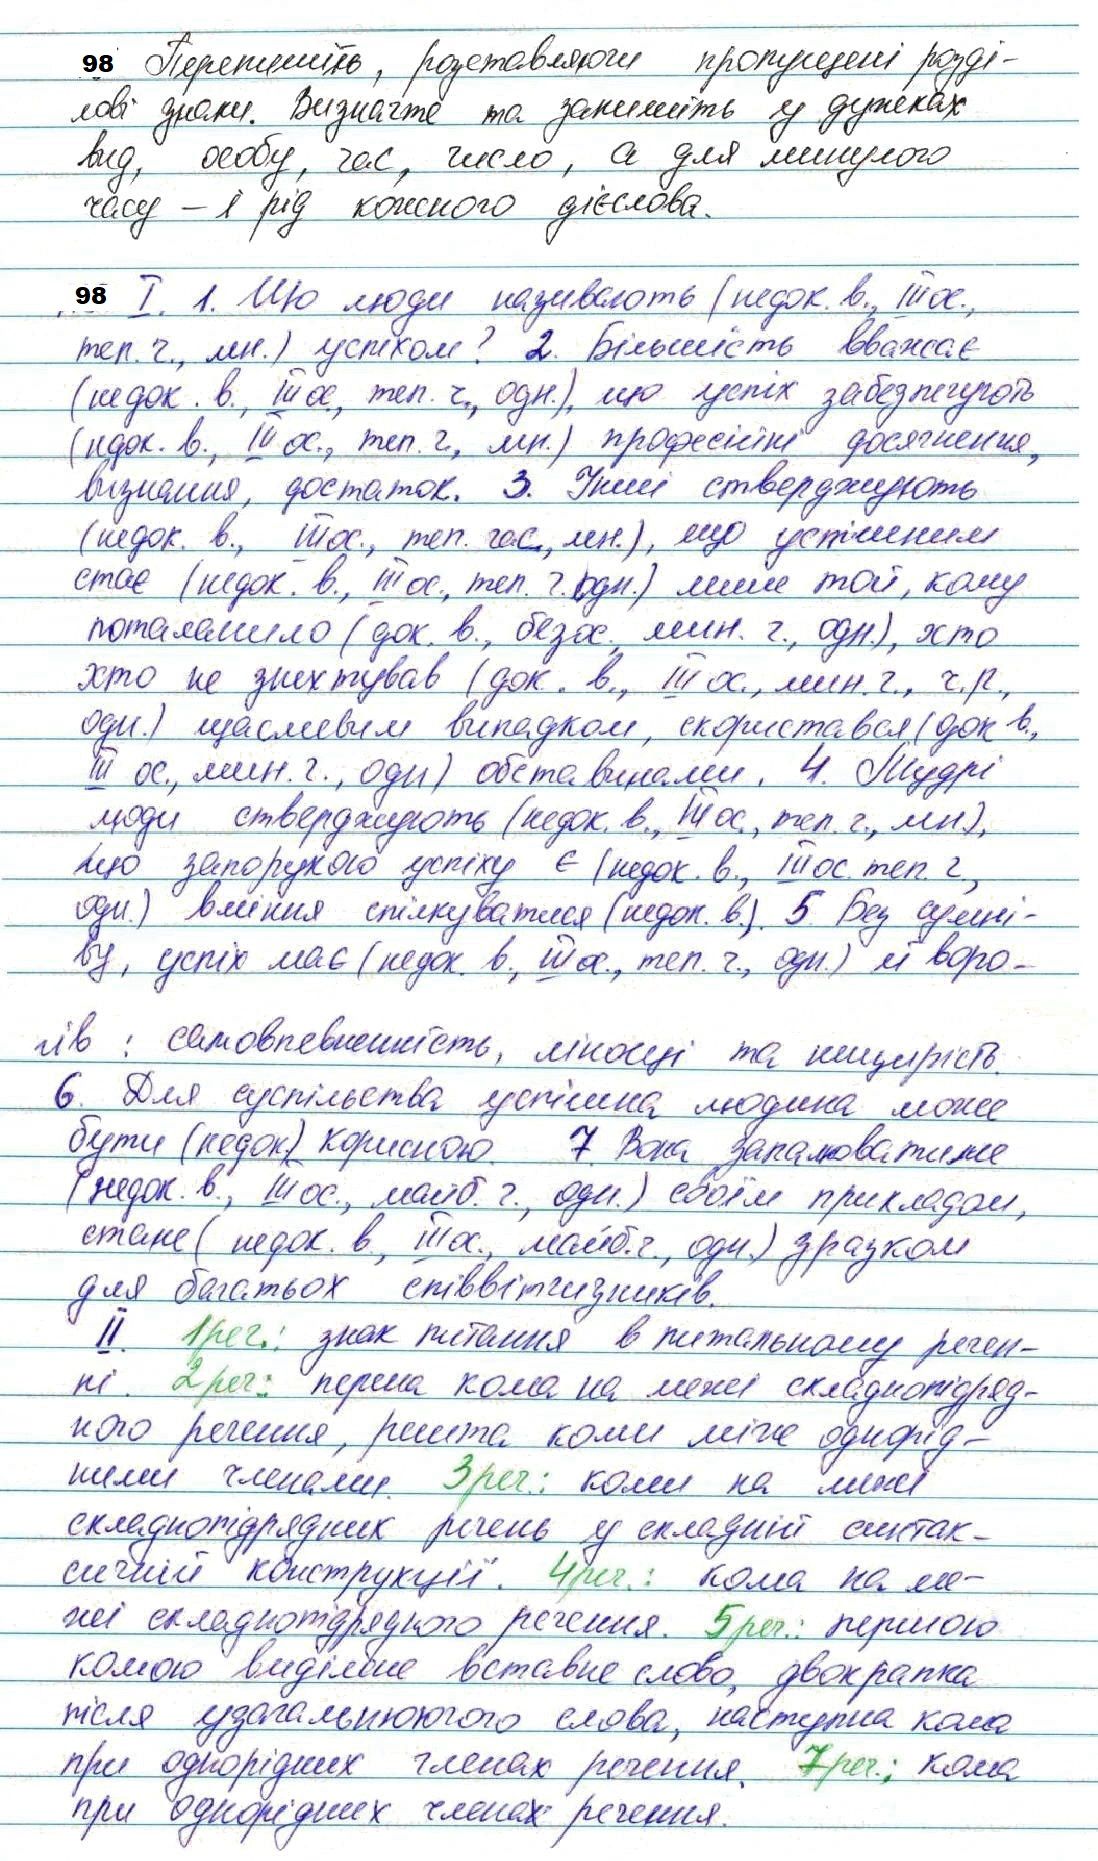 98 Перепишіть, розставляючи пропущені розді-
лові знаки. Визначте та запишіть у дужках
вид, особу, час, число, а для минулого
часу – і рід кожного дієслова.
98 І. 1. Що люди називають (недок. в., ІІІ ос.,
теп. ч., мн.) успіхом? 2. Більшість вважає
(недок. в., ІІІ ос., теп. ч., одн.), що успіх забезпечують
(ндок. в., ІІІ ос., теп. ч., мн.) професійні досягнення,
визнання, достаток. 3. Інші стверджують
(недок. в., ІІІ ос., теп. час., мн.), що успішним
стає (недок. в., ІІІ ос., теп. ч. одн.) лише той, кому
поталанило (док. в., безос., мин. ч., одн.), хто
хто не знехтував (док. в., ІІІ ос., мин. ч., ч.р.,
одн.) щасливим випадком, скористався (док в.,
ІІІ ос., мин. ч., одн) обставинами. 4. Мудрі
люди стверджують (недок. в., ІІІ ос., теп. ч., мн.),
що запорукою успіху є (недок. в., ІІІ ос. теп. ч.,
одн.) вміння спілкуватися (недок. в.). 5 Без сумні-
ву, успіх має (недок. в., ІІІ ос., теп. ч., одн.) й воро-
гів : самовпевненність, лінощі та нещирість.
6. Для суспільства успішна людина може
бути (недок.) корисною. 7. Вона запалюватиме
(недок. в., ІІІ ос., майб. ч., одн.) своїм прикладом,
стане ( недок. в., ІІІ ос., майб. ч., одн.) зразком
для багатьох співвітчизників.
ІІ. 1 реч.: знак питання в питальному речен-
ні. 2 реч: перша кома на межі складнопідряд-
ного речення, решта коми між однорід-
ними членами. 3 реч.: коми на межі
складнопідрядних речень у складній синтак-
сичній конструкції. 4 реч.: кома на ме-
жі складнопідрядного речення. 5 реч.: першою
комою виділене вставне слово, двокрапка
після узагальнюючого слова, наступна кома
при однорідних членах речення. 7 реч.; кома
при однорідних членах речення.